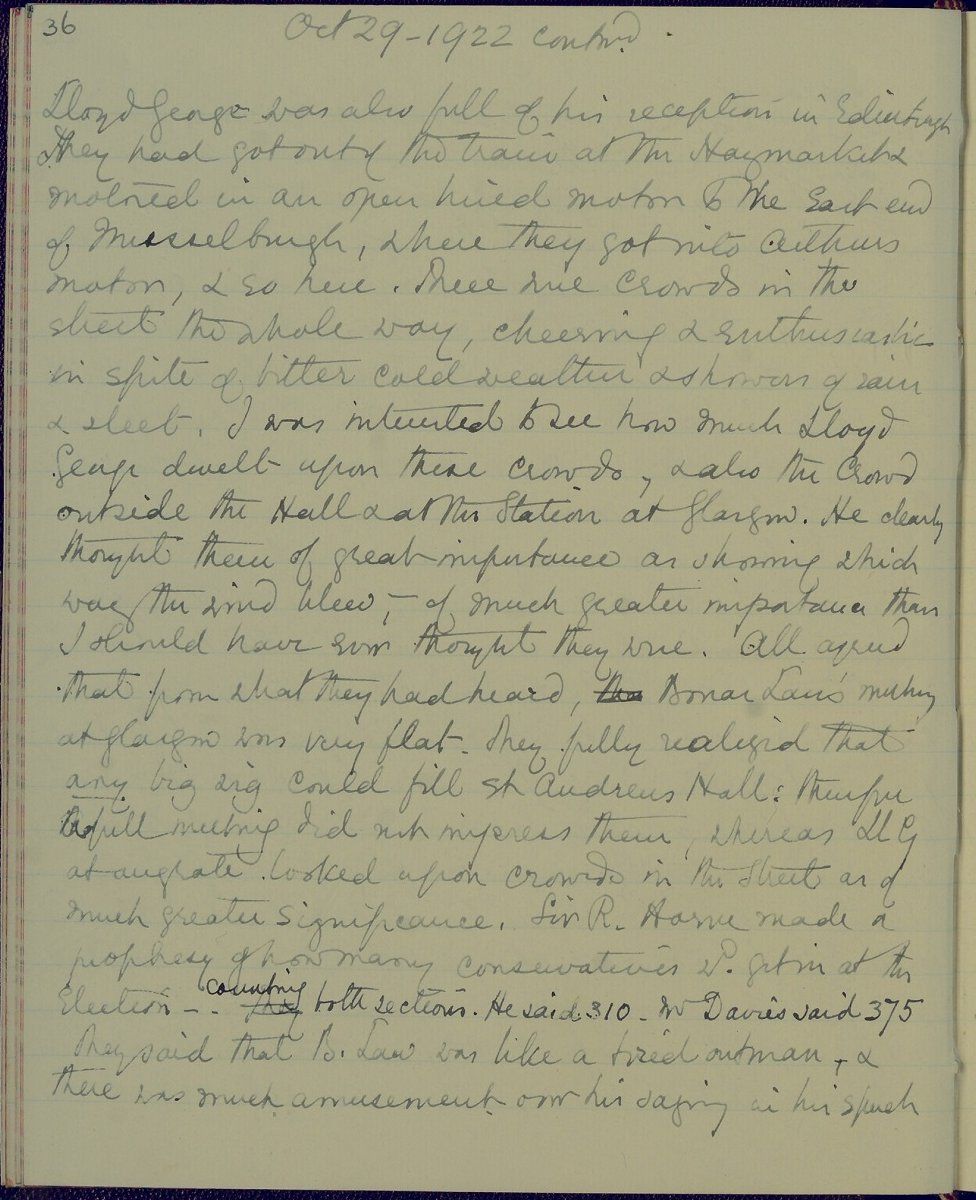 36
Oct 29 - 1922 contind.
Lloyd George was also full of his reception in Edinburgh
They had got out of the train at the Haymarket &
motored in an open hired motor to the East end
of Musselburgh, where they got into Arthurs
motor, & so here. There were crowds in the
street the whole way, cheering & enthusiastic
in spite of bitter cold weather & showers of rain
& sleet. I was interested to see how much Lloyd
George dwelt upon these crowds, & also the crowd
outside the Hall & at the Station at Glasgow. He clearly
thought them of great importance as showing which
way the wind blew, - of much greater importance than
I should have even thought they were. All agreed
that from what they had heard, the Bonar Law's meeting
at Glasgow was very flat. They fully realized that
any big wig could fill St Andrews Hall: therefore
a full meeting did not impress them, whereas Ll G
at any rate looked upon crowds in the street as of
much greater significance. Sir R. Horne made a
prophesy of how many conservatives wd. get in at the
Election -. counting they both sections. He said 310 - Mr Davies said 375
They said that B. Law was like a tired out man, &
there was much amusement over his saying in his speech